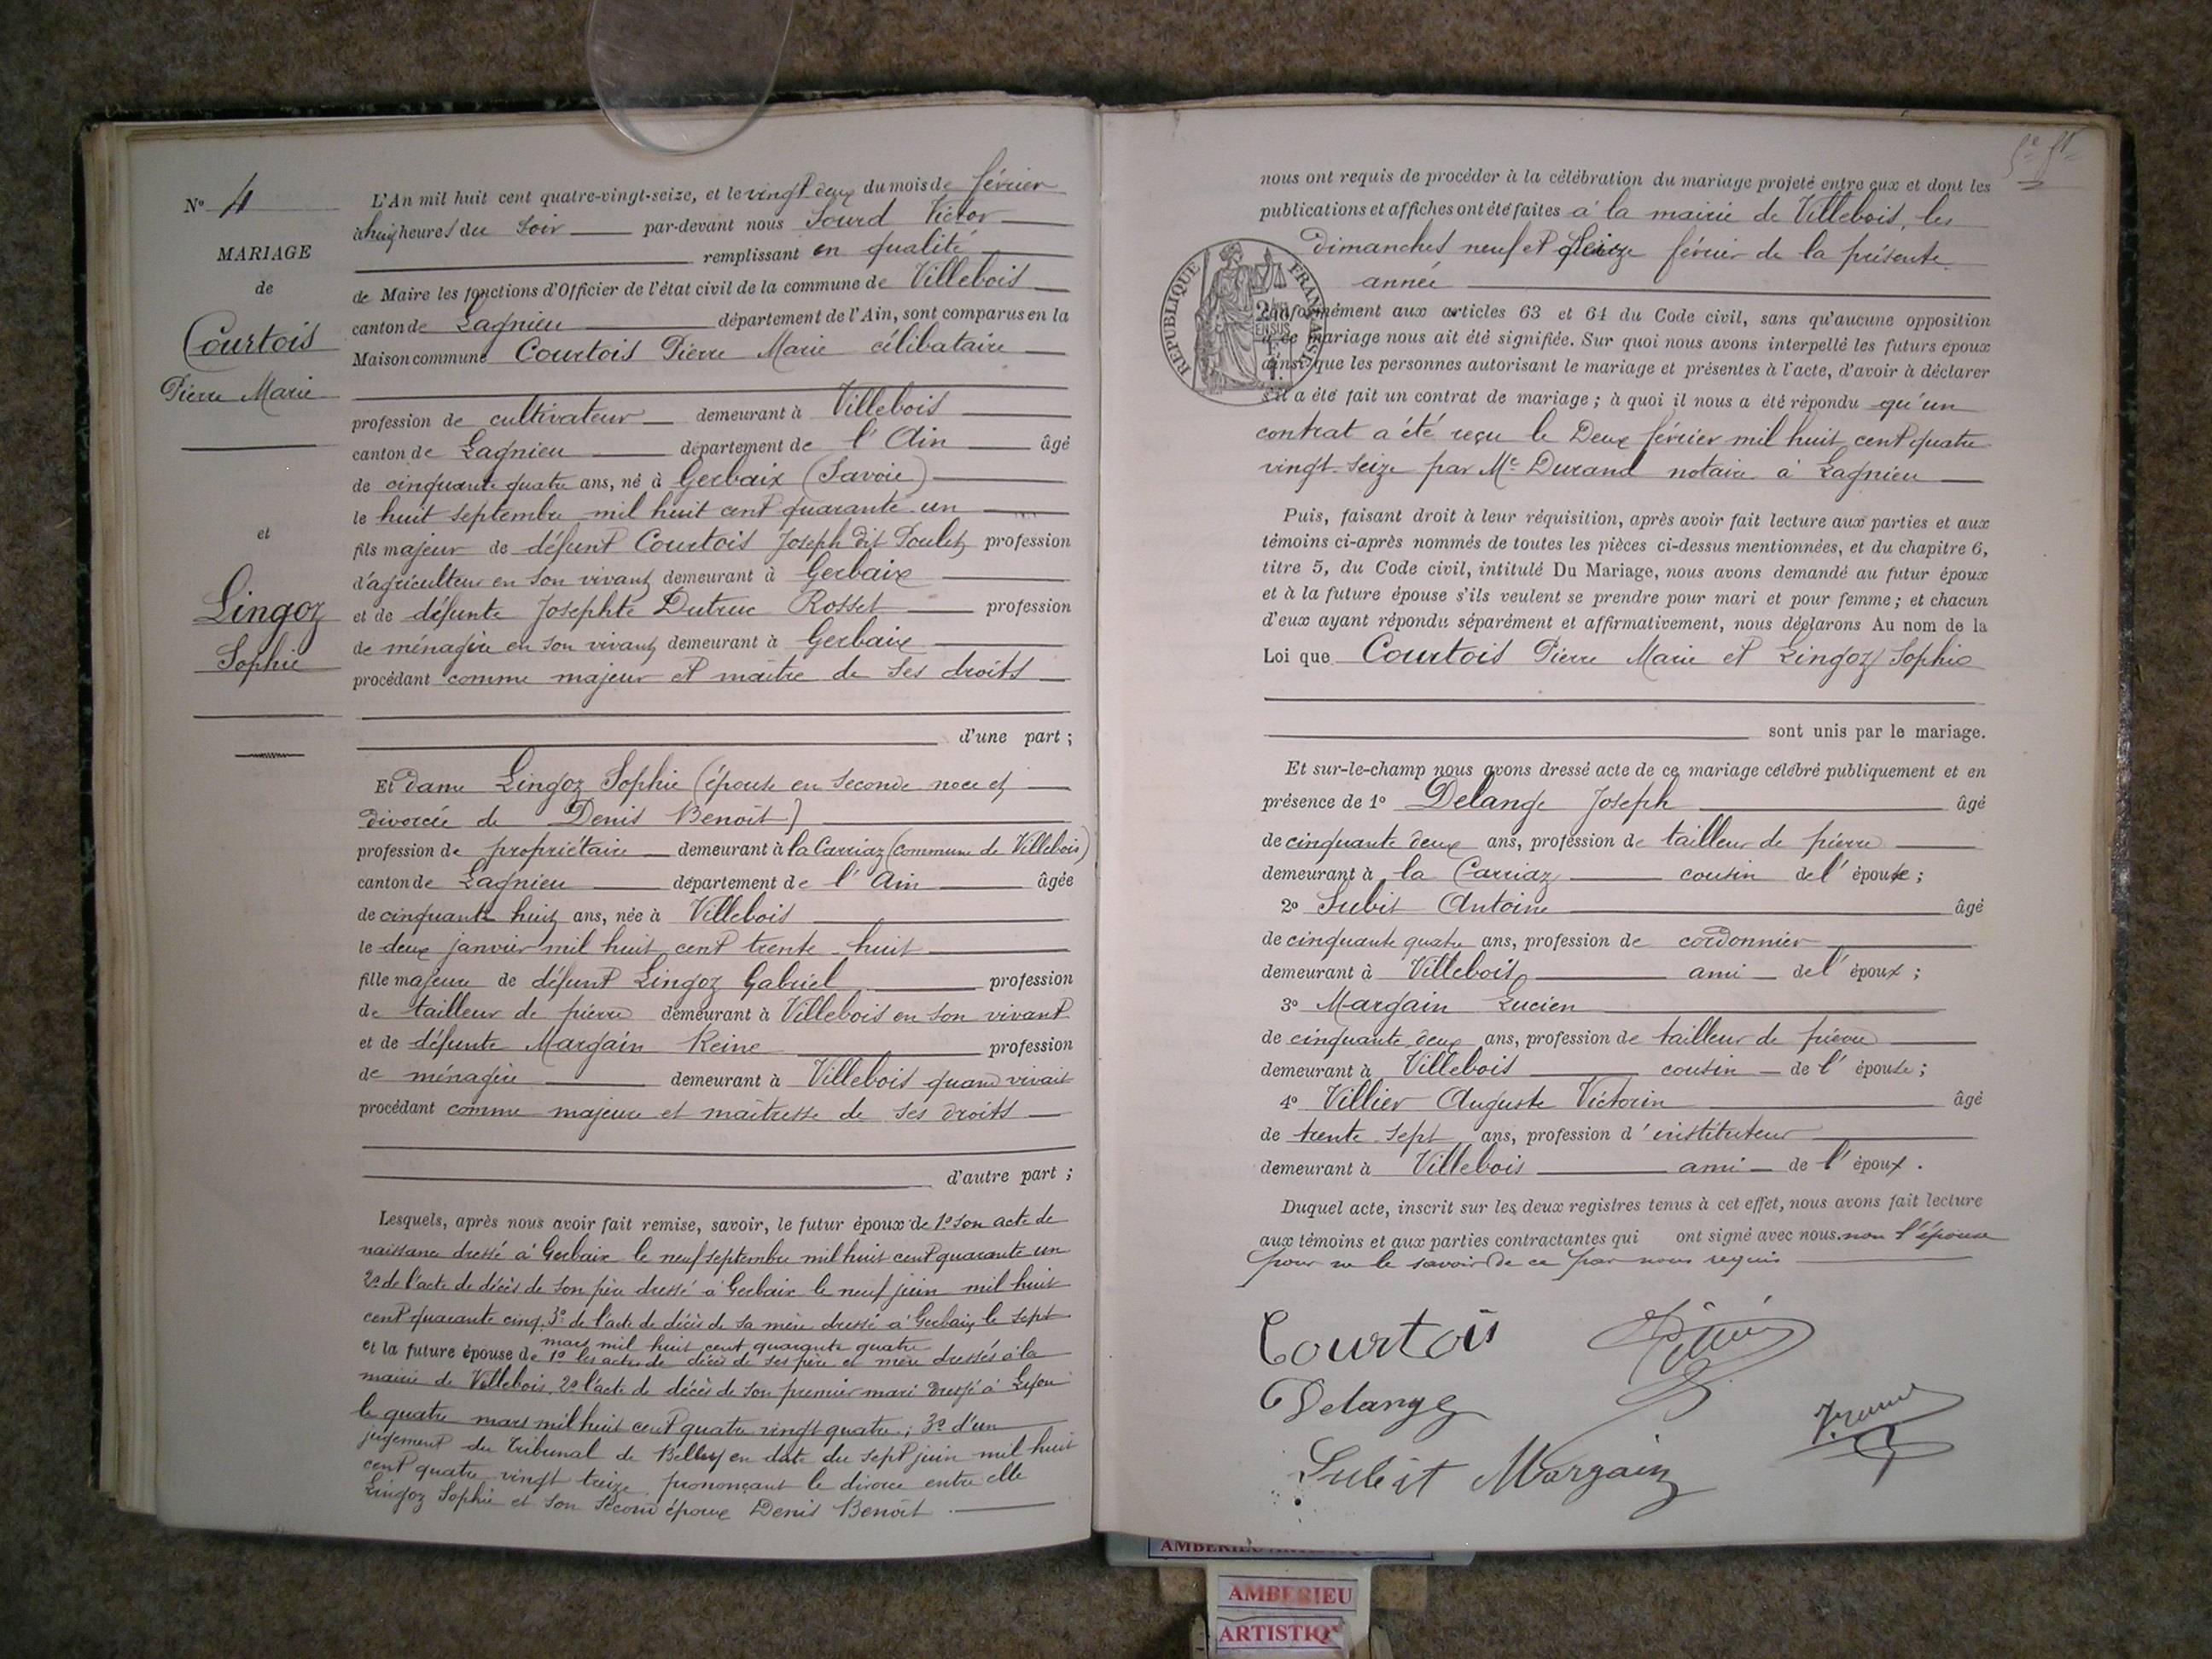 N° 4
MARIAGE
de
Courtois
Pierre Marie
et
Lingoz
Sophie
L'An mil huit cent quatre-vingt-seize, et le vingt deux du mois de février
à huit heures du soir par-devant nous Sourd Victor
remplissant en qualité
de Maire les fonctions d'Officier de l'état civil de la commune de Villebois
canton de Lagnieu département de l'Ain, sont comparus en la
Maison commune Courtois Pierre Marie célibataire
profession de cultivateur demeurant à Villebois
canton de Lagnieu département de l'Ain âgé
de cinquante quatre ans, né à Gerbaix (Savoie)
le huit septembre mil huit cent quarante un
fils majeur de défunt Courtois Joseph dit Poulet profession
d'agriculteur en son vivant demeurant à Gerbaix
et de défunte Josephte Dutruc Rosset profession
de ménagère en son vivant demeurant à Gerbaix
procédant comme majeur et maître de ses droits
d'une part ;
Et Dame Lingoz Sophie (épouse en seconde noce et
divorcée de Denis Benoît)
profession de propriétaire demeurant à la Carriaz (commune de Villebois)
canton de Lagnieu département de l'Ain âgée
de cinquante huit ans, née à Villebois
le deux janvier mil huit cent trente-huit
fille majeure de défunt Lingoz Gabriel profession
de tailleur de pierre demeurant à Villebois en son vivant
et de défunte Margain Reine profession
de ménagère demeurant à Villebois quand vivait
procédant comme majeure et maîtresse de ses droits
d'autre part ;
Lesquels, après nous avoir fait remise, savoir, le futur époux de 1° son acte de
naissance dressé à Gerbaix le neuf septembre mil huit cent quarante un
2° de l'acte de décès de son père dressé à Gerbaix le neuf juin mil huit
cent quarante cinq, 3° de l'acte de décès de sa mère dressé à Gerbaix le sept
mars mil huit cent quarante quatre
et la future épouse de 1° les actes de décès de ses père et mère dressés à la
mairie de Villebois, 2° l'acte de décès de son premier mari dressé à Lyon
le quatre mars mil huit cent quatre vingt quatre ; 3° d'un
jugement du Tribunal de Belley en date du sept juin mil huit
cent quatre vingt treize, prononçant le divorce entre elle
Lingoz Sophie et son second époux Denis Benoît
nous ont requis de procéder à la célébration du mariage projeté entre eux et dont les
publications et affiches ont été faites à la mairie de Villebois, les
dimanches neuf et seize février de la présente
année
RÉPUBLIQUE FRANÇAISE
conformément aux articles 63 et 64 du Code civil, sans qu'aucune opposition
à ce mariage nous ait été signifiée. Sur quoi nous avons interpellé les futurs époux
ainsi que les personnes autorisant le mariage et présentes à l'acte, d'avoir à déclarer
s'il a été fait un contrat de mariage ; à quoi il nous a été répondu qu'un
contrat a été reçu le Deux février mil huit cent quatre
vingt-seize par Me Durand notaire à Lagnieu
Puis, faisant droit à leur réquisition, après avoir fait lecture aux parties et aux
témoins ci-après nommés de toutes les pièces ci-dessus mentionnées, et du chapitre 6,
titre 5, du Code civil, intitulé Du Mariage, nous avons demandé au futur époux
et à la future épouse s'ils veulent se prendre pour mari et pour femme ; et chacun
d'eux ayant répondu séparément et affirmativement, nous déclarons Au nom de la
Loi que Courtois Pierre Marie et Lingoz Sophie
sont unis par le mariage.
Et sur-le-champ nous avons dressé acte de ce mariage célébré publiquement et en
présence de 1° Delange Joseph âgé
de cinquante deux ans, profession de tailleur de pierre
demeurant à la Carriaz cousin de l'épouse ;
2° Subit Antoine âgé
de cinquante quatre ans, profession de cordonnier
demeurant à Villebois ami de l'époux ;
3° Margain Lucien
de cinquante deux ans, profession de tailleur de pierre
demeurant à Villebois cousin de l'épouse ;
4° Villier Auguste Victorin âgé
de trente sept ans, profession d'instituteur
demeurant à Villebois ami de l'époux.
Duquel acte, inscrit sur les deux registres tenus à cet effet, nous avons fait lecture
aux témoins et aux parties contractantes qui ont signé avec nous. non l'épouse
pour ne le savoir de ce par nous requis
Courtois
Delange
Subit Margain
AMBERIEU
ARTISTIQ